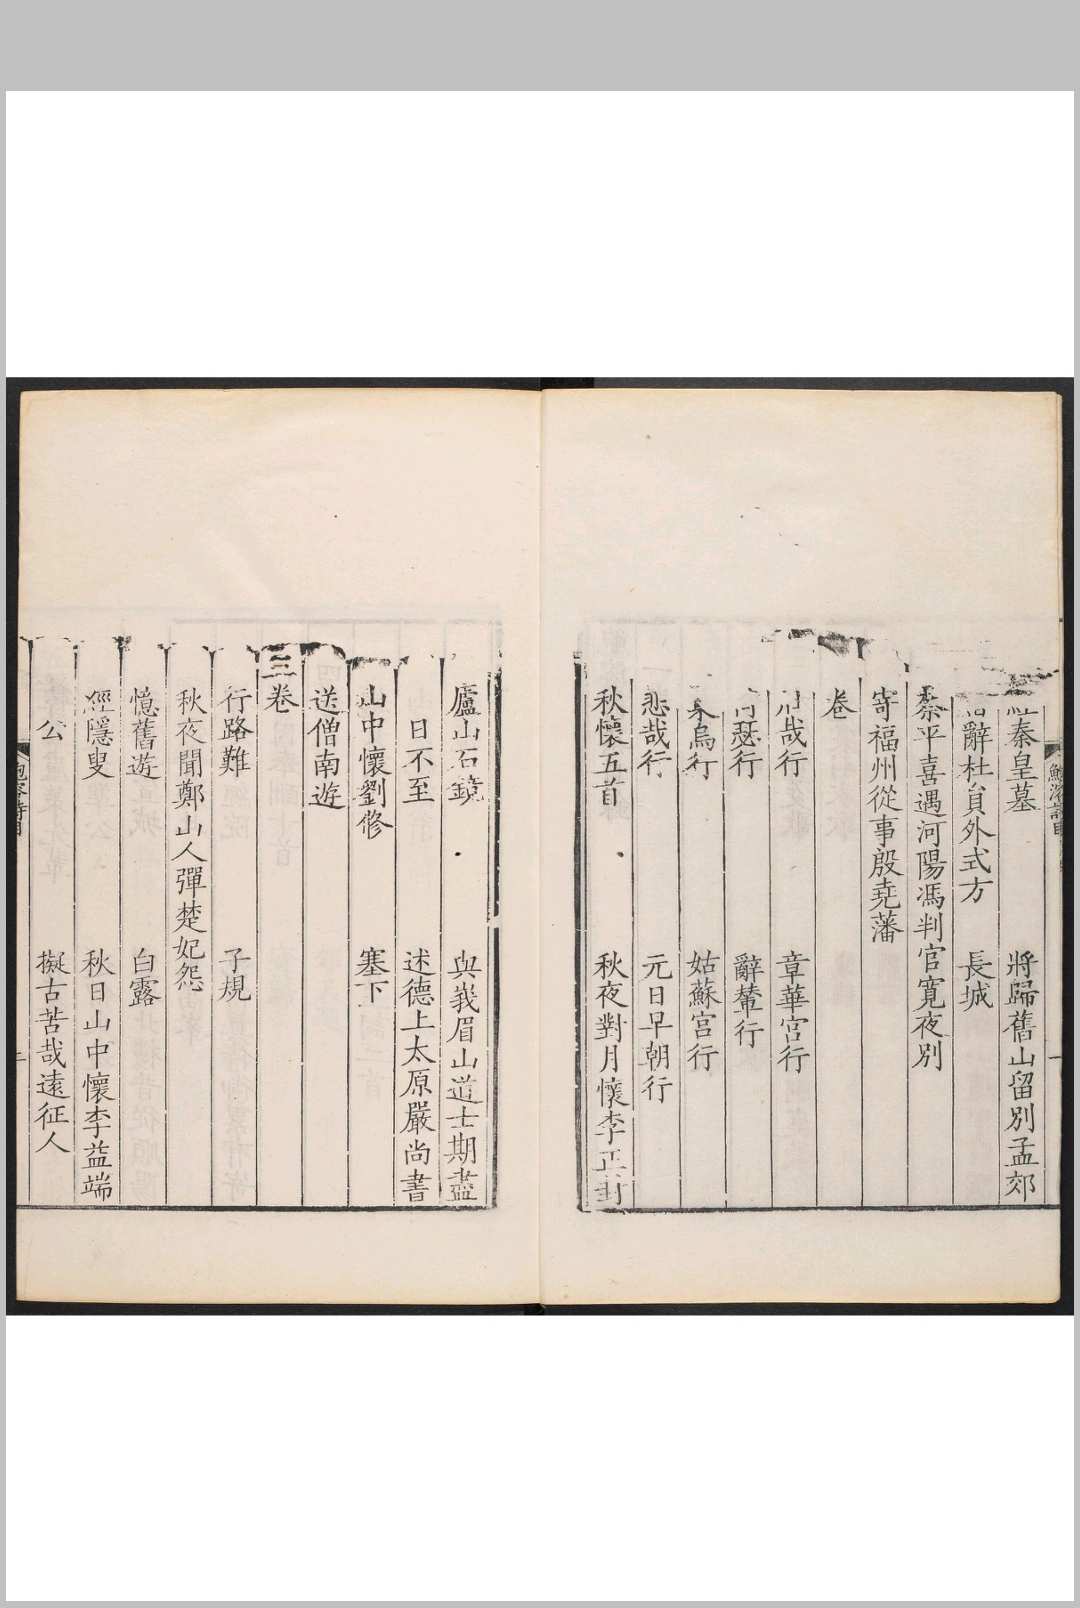 經秦皇墓 將歸舊山留別孟郊
辭杜員外式方 長城
蔡平喜遇河陽馮判官寬夜別
寄福州從事殷堯藩
卷
哉行 章華宮行
瑟行 辭輦行
烏行 姑蘇宮行
悲哉行 元日早朝行
秋懷五首 秋夜對月懷李正封
廬山石鏡 與峩眉山道士期盡
日不至 述德上太原嚴尚書
山中懷劉修 塞下
送僧南遊
三卷
行路難 子規
秋夜聞鄭山人彈楚妃怨
憶舊遊 白露
經隱叟 秋日山中懷李益端
公 擬古苦哉遠征人
鮑溶詩目